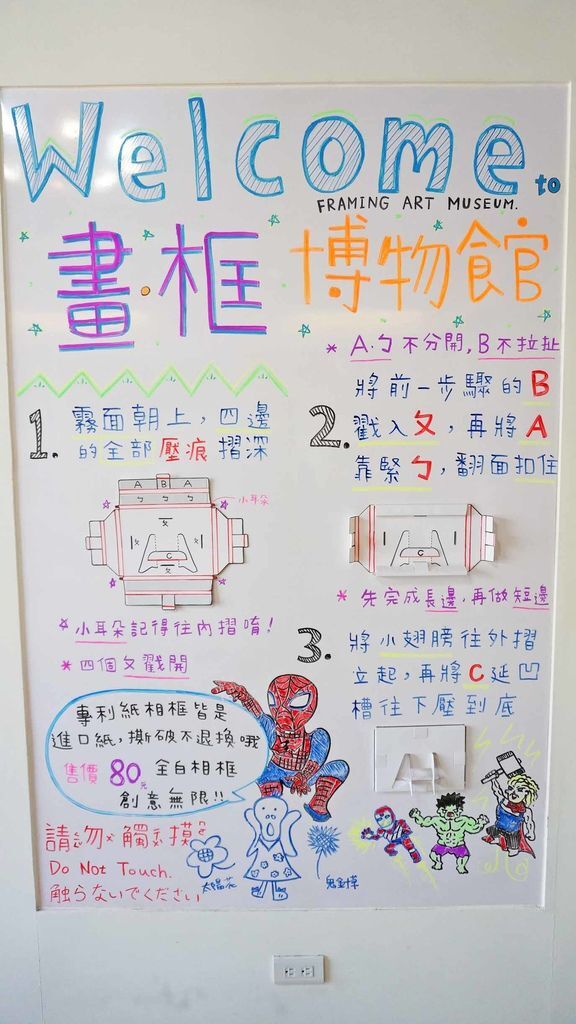 Welcome to
FRAMING ART MUSEUM.
畫框 博物館
1. 霧面朝上，四邊
的全部壓痕摺深
A B A
ㄅ ㄅ ㄅ
小耳朵
ㄆ
ㄆ ㄆ
C
ㄆ
☆小耳朵記得往內摺唷!
*四個ㄆ戳開
* A.ㄅ不分開,B不拉扯
2. 將前一步驟的B
戳入ㄆ，再將A
靠緊ㄅ,翻面扣住
C
* 先完成長邊,再做短邊
3. 將小翅膀往外摺
立起，再將C延凹
槽往下壓到底
專利紙相框皆是
進口紙,撕破不退換哦
售價80元 全白相框
創意無限!!
請勿觸摸
Do Not Touch.
触らないでください
太陽花